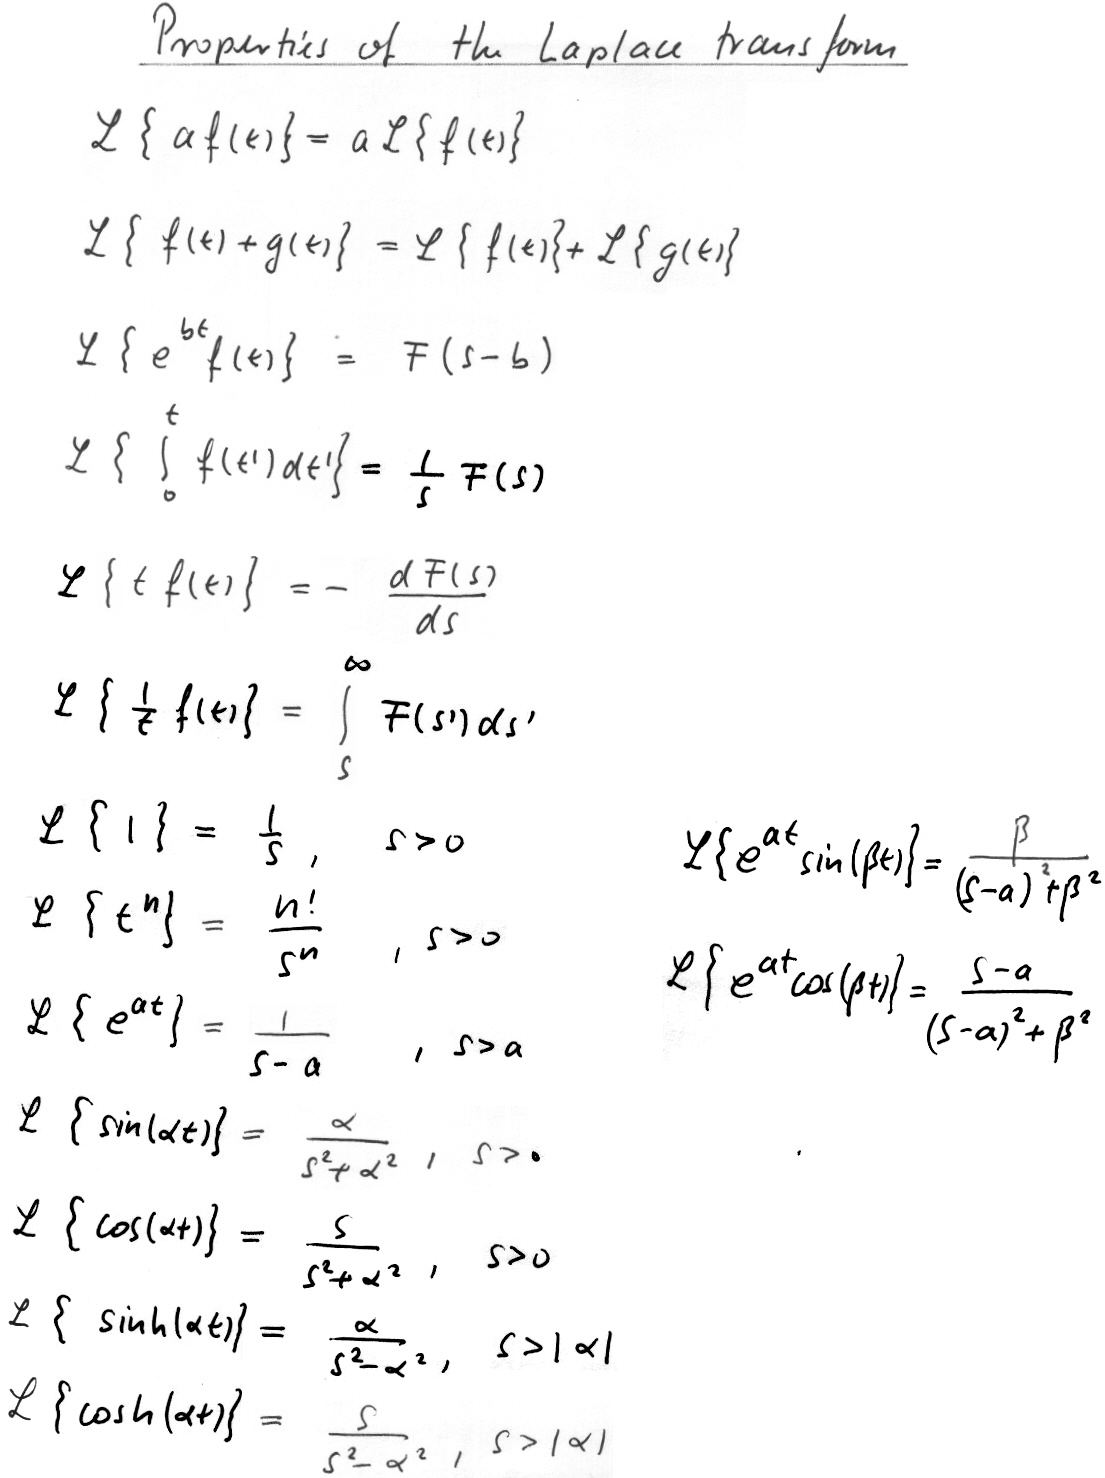 Properties of the Laplace transform
ℒ{a f(t)} = a ℒ{f(t)}
ℒ{f(t) + g(t)} = ℒ{f(t)} + ℒ{g(t)}
ℒ{e^{bt} f(t)} = F(s-b)
ℒ{∫_0^t f(t')dt'} = 1/s F(s)
ℒ{t f(t)} = - dF(s)/ds
ℒ{1/t f(t)} = ∫_s^∞ F(s')ds'
ℒ{1} = 1/s, s>0
ℒ{t^n} = n!/s^n, s>0
ℒ{e^{at}} = 1/(s-a), s>a
ℒ{sin(αt)} = α/(s²+α²), s>0
ℒ{cos(αt)} = s/(s²+α²), s>0
ℒ{sinh(αt)} = α/(s²-α²), s>|α|
ℒ{cosh(αt)} = s/(s²-α²), s>|α|
ℒ{e^{at} sin(βt)} = β/((s-a)²+β²)
ℒ{e^{at} cos(βt)} = (s-a)/((s-a)²+β²)